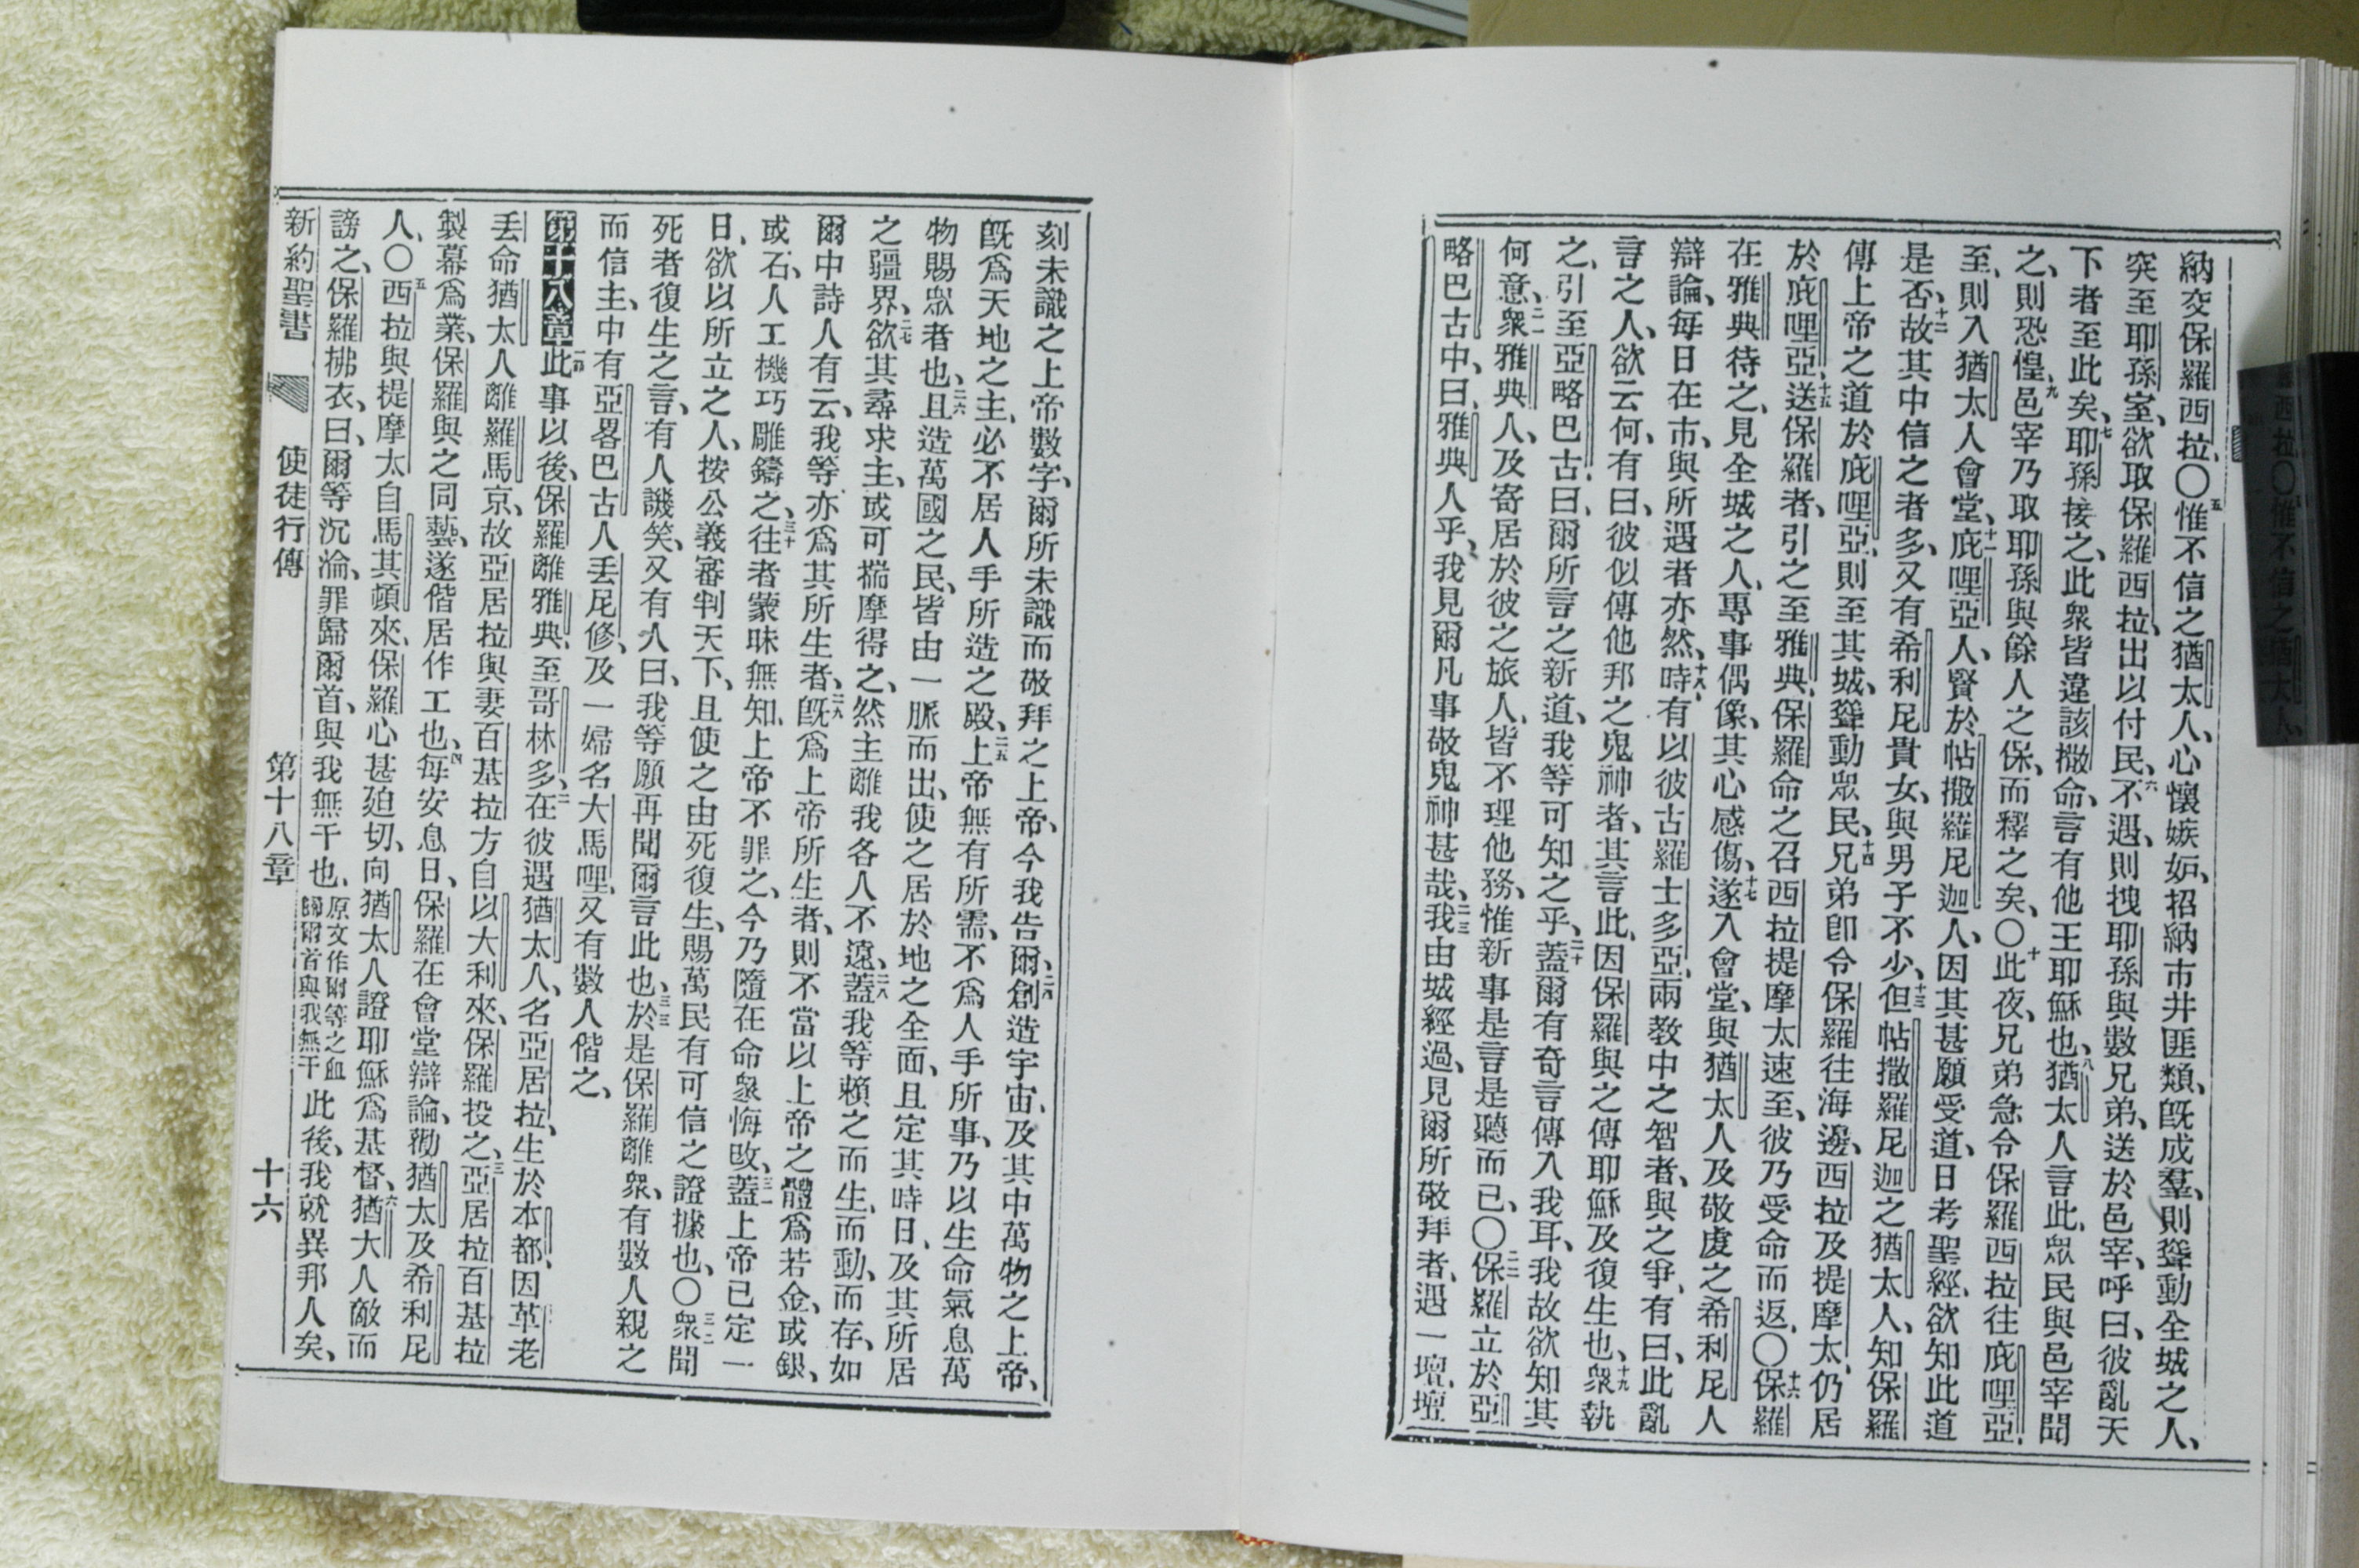 納交保羅西拉、〇五惟不信之猶太人、心懷嫉妒、招納市井匪類、旣成羣、則聳動全城之人、
突至耶孫室、欲取保羅西拉、出以付民、六不遇、則拽耶孫與數兄弟、送於邑宰、呼曰、彼亂天
下者至此矣、七耶孫接之、此衆皆違該撒命、言有他王耶穌也、八猶太人言此、眾民與邑宰聞
之、則恐惶、九邑宰乃取耶孫與餘人之保、而釋之矣、〇十此夜、兄弟急令保羅西拉往庇哩亞、
至、則入猶太人會堂、十一庇哩亞人、賢於帖撒羅尼迦人、因其甚願受道、日考聖經、欲知此道
是否、十二故其中信之者多、又有希利尼貴女、與男子不少、十三但帖撒羅尼迦之猶太人、知保羅
傳上帝之道於庇哩亞、則至其城、聳動眾民、十四兄弟卽令保羅往海邊、西拉及提摩太、仍居
於庇哩亞、十五送保羅者、引之至雅典、保羅命之召西拉提摩太速至、彼乃受命而返、〇十六保羅
在雅典待之、見全城之人、專事偶像、其心感傷、十七遂入會堂、與猶太人及敬虔之希利尼人
辯論、每日在市、與所遇者亦然、十八時有以彼古羅士多亞、兩教中之智者、與之爭、有曰、此亂
言之人、欲云何、有曰、彼似傳他邦之鬼神者、其言此、因保羅與之傳耶穌及復生也、十九衆執
之、引至亞略巴古、曰、爾所言之新道、我等可知之乎、二十蓋爾有奇言傳入我耳、我故欲知其
何意、二一衆雅典人、及寄居於彼之旅人、皆不理他務、惟新事是言是聽而已、〇二二保羅立於亞
略巴古中、曰、雅典人乎、我見爾凡事敬鬼神甚哉、二三我由城經過、見爾所敬拜者、遇一壇、壇
刻未識之上帝數字、爾所未識而敬拜之上帝、今我告爾、二四創造宇宙、及其中萬物之上帝、
旣爲天地之主、必不居人手所造之殿、二五上帝無有所需、不爲人手所事、乃以生命氣息萬
物賜眾者也、二六且造萬國之民、皆由一脈而出、使之居於地之全面、且定其時日、及其所居
之疆界、二七欲其尋求主、或可揣摩得之、然主離我各人不遠、二八蓋我等賴之而生、而動、而存、如
爾中詩人有云、我等亦爲其所生者、二九旣爲上帝所生者、則不當以上帝之體爲若金、或銀、
或石、人工機巧雕鑄之、三十往者蒙昧無知、上帝不罪之、今乃隨在命衆悔改、三一蓋上帝已定一
日、欲以所立之人、按公義審判天下、且使之由死復生、賜萬民有可信之證據也、〇三二衆聞
死者復生之言、有人譏笑、又有人曰、我等願再聞爾言此也、三三於是保羅離衆、有數人親之
而信主、中有亞畧巴古人丟尼修、及一婦名大馬哩、又有數人偕之、
第十八章 一節此事以後、保羅離雅典、至哥林多、二在彼遇猶太人、名亞居拉、生於本都、因革老
丟命猶太人離羅馬京、故亞居拉與妻百基拉方自以大利來、保羅投之、三亞居拉百基拉
製幕爲業、保羅與之同藝、遂偕居作工也、四每安息日、保羅在會堂辯論、勸猶太及希利尼
人、〇五西拉與提摩太自馬其頓來、保羅心甚廹切、向猶太人證耶穌爲基督、六猶大人敵而
謗之、保羅拂衣、曰、爾等沉淪、罪歸爾首、與我無干也、原文作爾等之血歸爾首與我無干 此後、我就異邦人矣、
新約聖書 使徒行傳 第十八章 十六